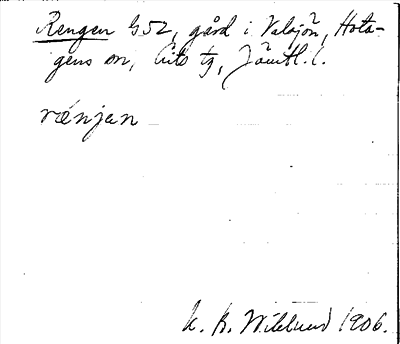 Rengen G52, gård i Valsjön, Hota-
gens sn, Lits tg, Jämtl. l.
rænjan
K. B. Wiklund 1906.